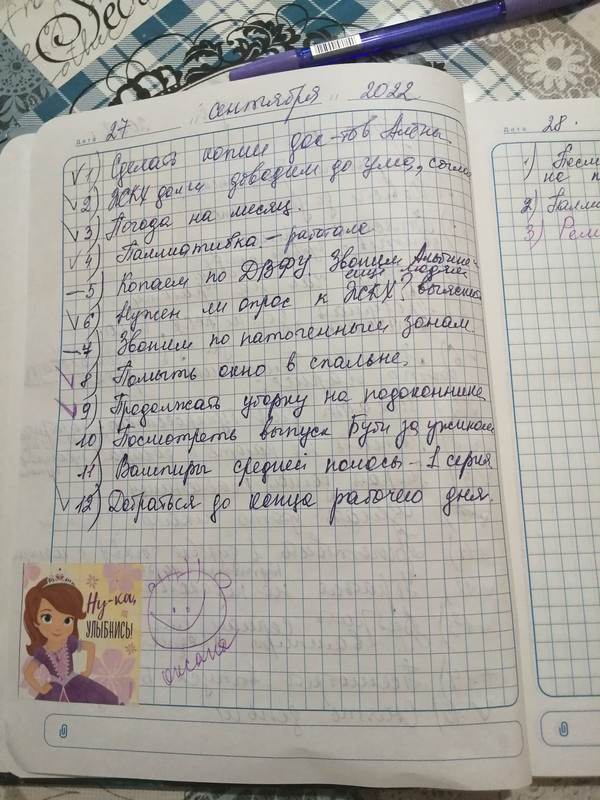 Дата 27 сентября 2022
V 1) Сделать копии док-тов Алёны
V 2) ЖКХ долги доводим до ума,
V 3) Погода на месяц.
V 4) Паллиативка – работаю
– 5) Копаем по ДВФУ. Звоним Альбине
ищи людей
V 6 Нужен ли опрос к ЖКХ? выясни
– 7) Звоним по патогенным зонам
V 8 Помыть окно в спальне.
V 9) Продолжать уборку на подоконнике
10) Посмотреть выпуск Бубы за ужином
11) Вампиры средней полосы – 1 серия
V 12) Добраться до конца рабочего дня.
Ну-ка,
УЛЫБНИСЬ!
оксана
Дата 28.
1)
2)
3)